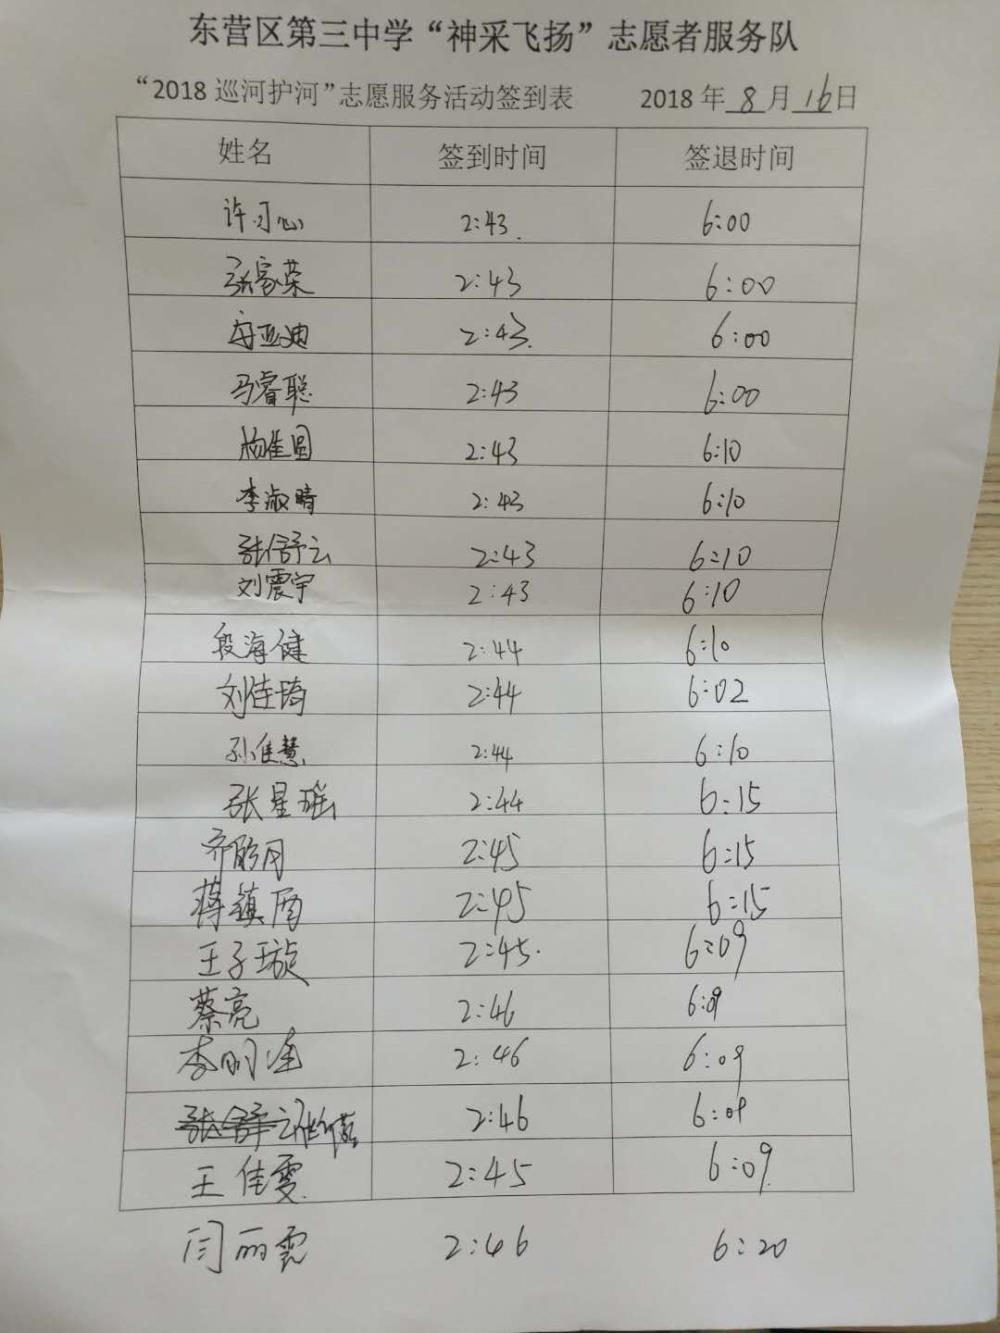 东营区第三中学“神采飞扬”志愿者服务队
“2018巡河护河”志愿服务活动签到表 2018年8月16日
姓名 签到时间 签退时间
许可心 2:43. 6:00
张家荣 2:43 6:00
亚迪 2:43. 6:00
马睿聪 2:43 6:00
杨佳圆 2:43 6:10
李淑晴 2:43 6:10
张舒云 2:43 6:10
刘震宇 2:43 6:10
段海健 2:44 6:10
刘佳琦 2:44 6:02
孙佳慧 2:44 6:10
张星瑶 2:44 6:15
齐月 2:45 6:15
蒋镇 2:45 6:15
王子璇 2:45. 6:09
蔡亮 2:46 6:09
李明 2:46 6:09
张舒云 2:46 6:09
王佳雯 2:45 6:09
闫丽霞 2:46 6:20